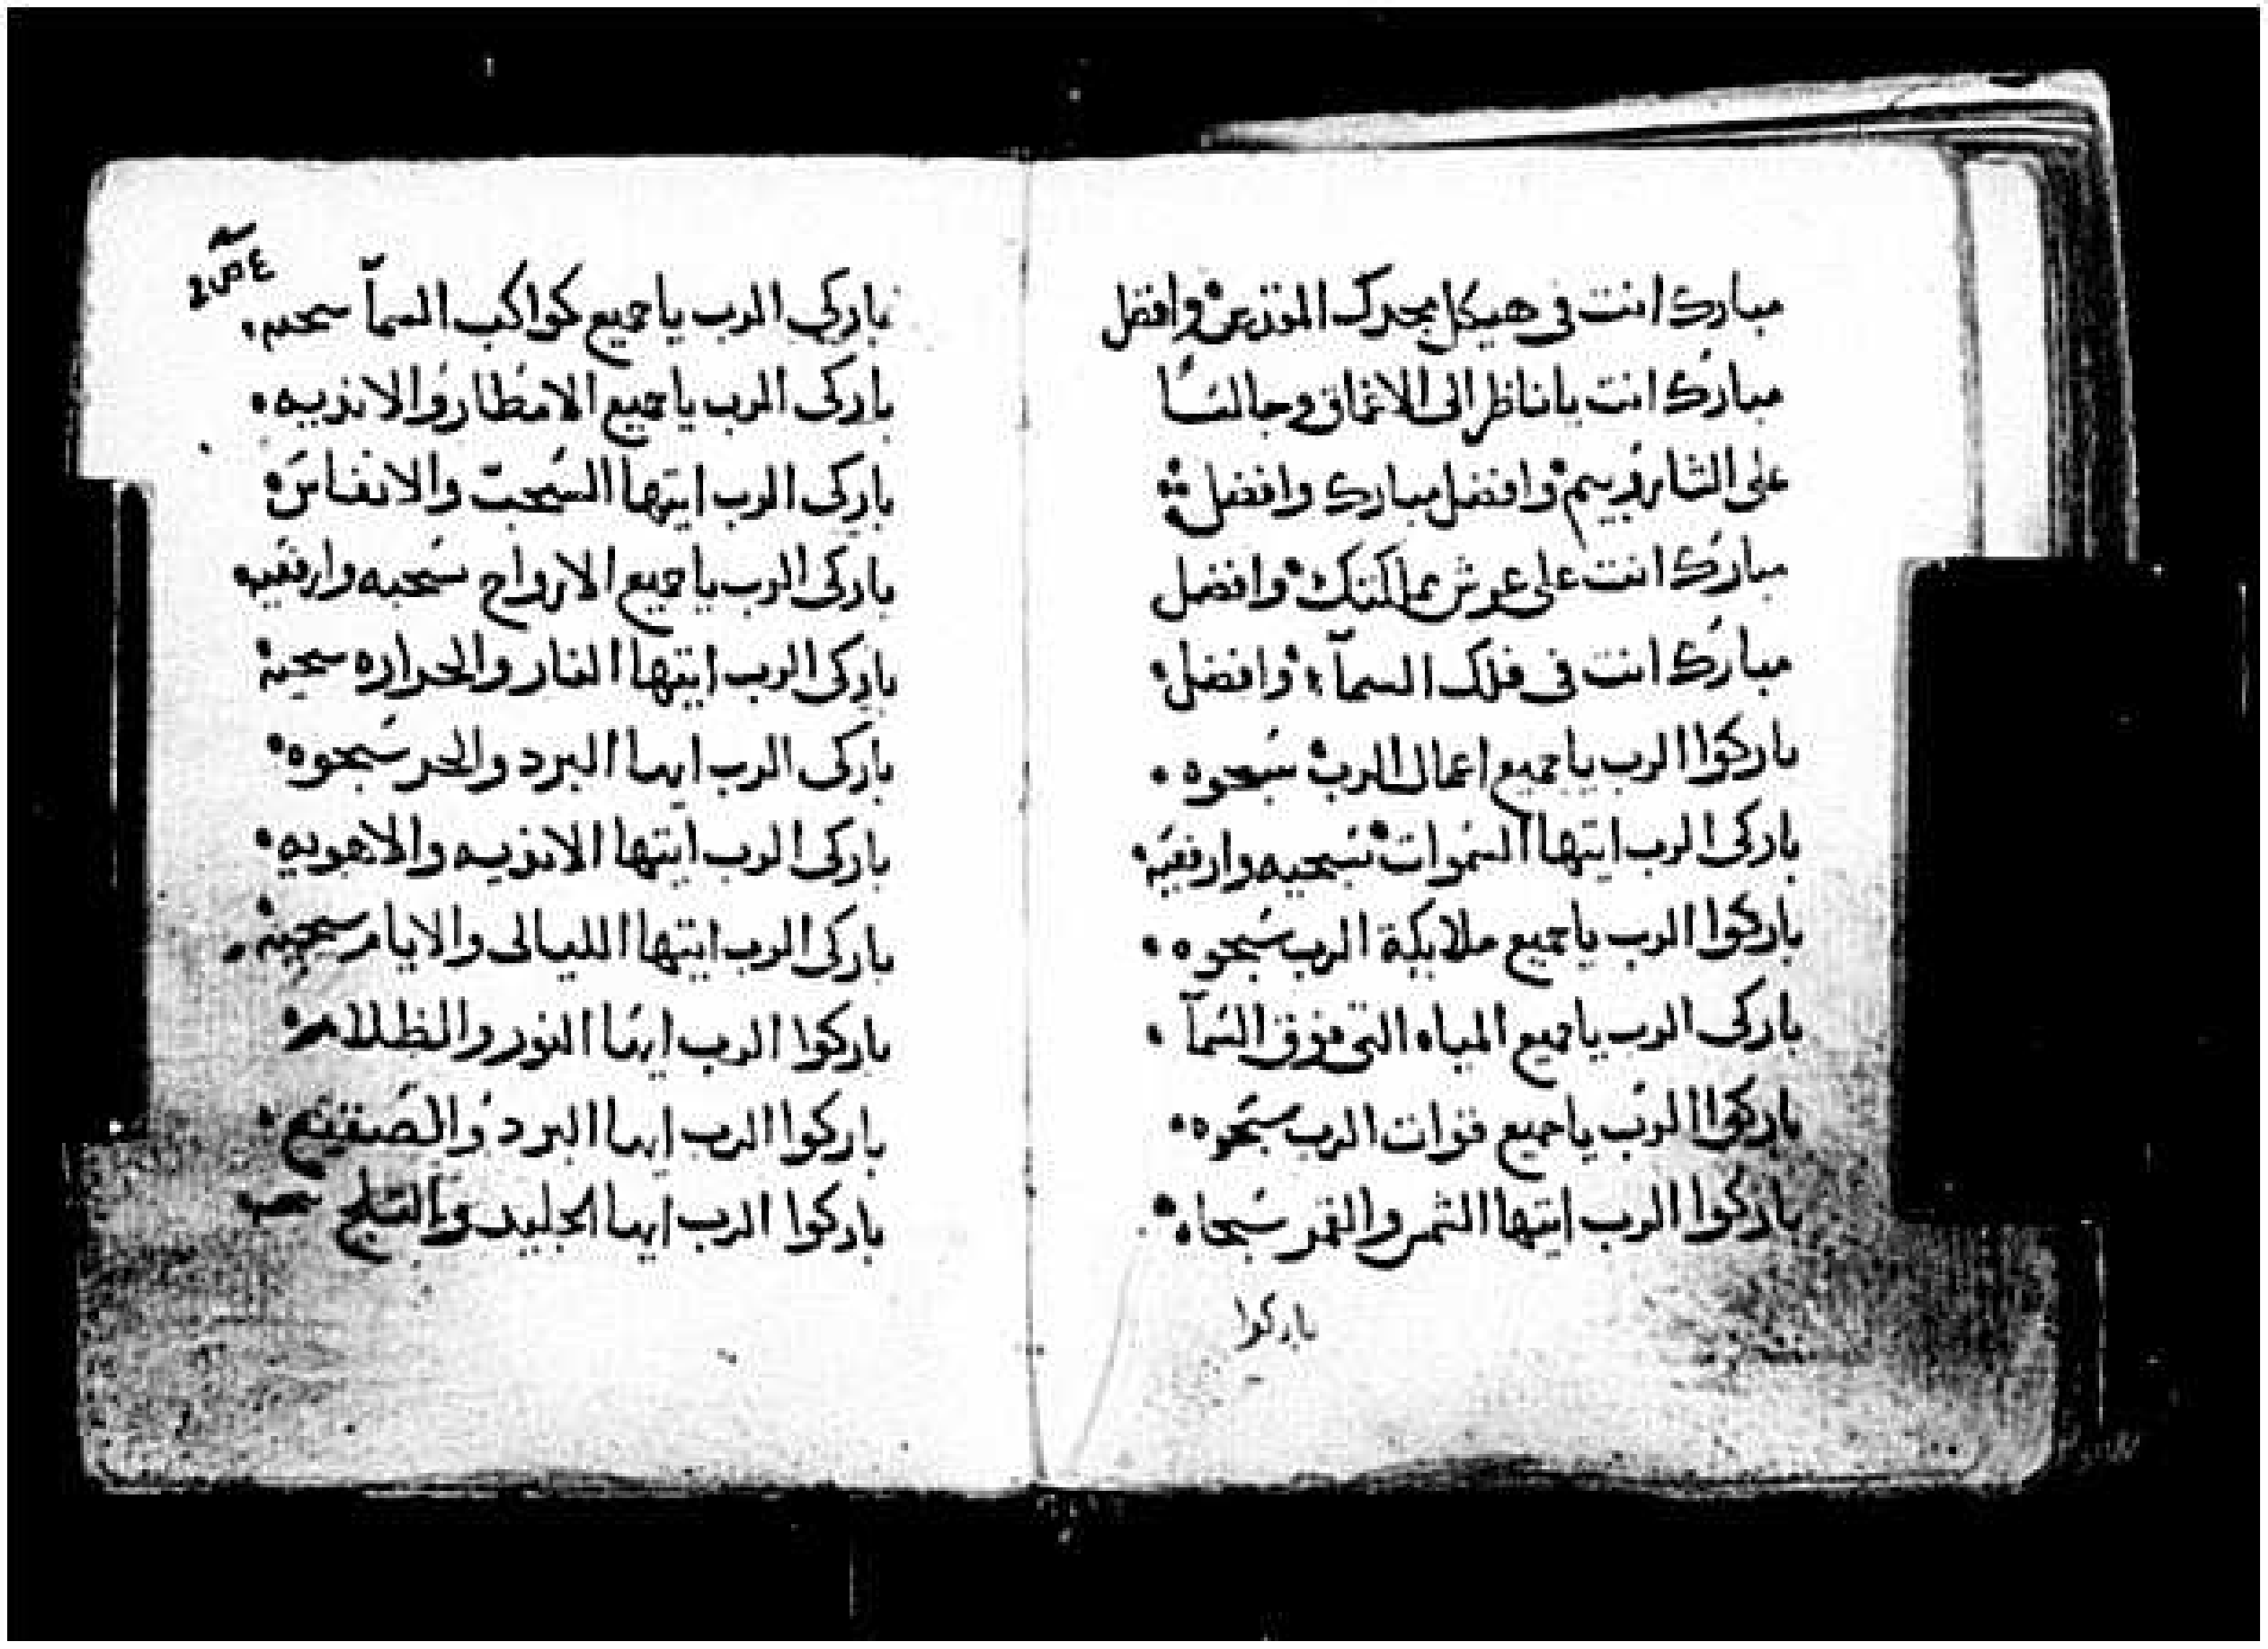 مبارك انت فى هيكل مجدك المقدس وافضل
مبارك انت يا ناظر الى الاعماق وجالسًا
على الشاروبيم وافضل مبارك وافضل
مبارك انت على عرش مملكتك وافضل
مبارك انت فى فلك السمآ وافضل
باركوا الرب يا جميع اعمال الرب سبحوه
باركى الرب ايتها السموات سبحيه وارفعيه
باركوا الرب يا جميع ملايكة الرب سبحوه
باركى الرب يا جميع المياه التى فوق السمآ
باركوا الرب يا جميع قوات الرب سبحوه
باركوا الرب ايتها الشمس والقمر سبحاه
باركوا
باركى الرب يا جميع كواكب السمآ سبحيه
باركى الرب يا جميع الامطار والانديه
باركى الرب ايتها السحب والانفاس
باركى الرب يا جميع الارواح سبحيه وارفعيه
باركى الرب ايتها النار والحراره سبحيه
باركى الرب ايها البرد والحر سبحوه
باركى الرب ايتها الانديه والاهويه
باركى الرب ايتها الليالى والايام سبحيه
باركوا الرب ايها النور والظلام
باركوا الرب ايها البرد والصقيع
باركوا الرب ايها الجليد والثلج